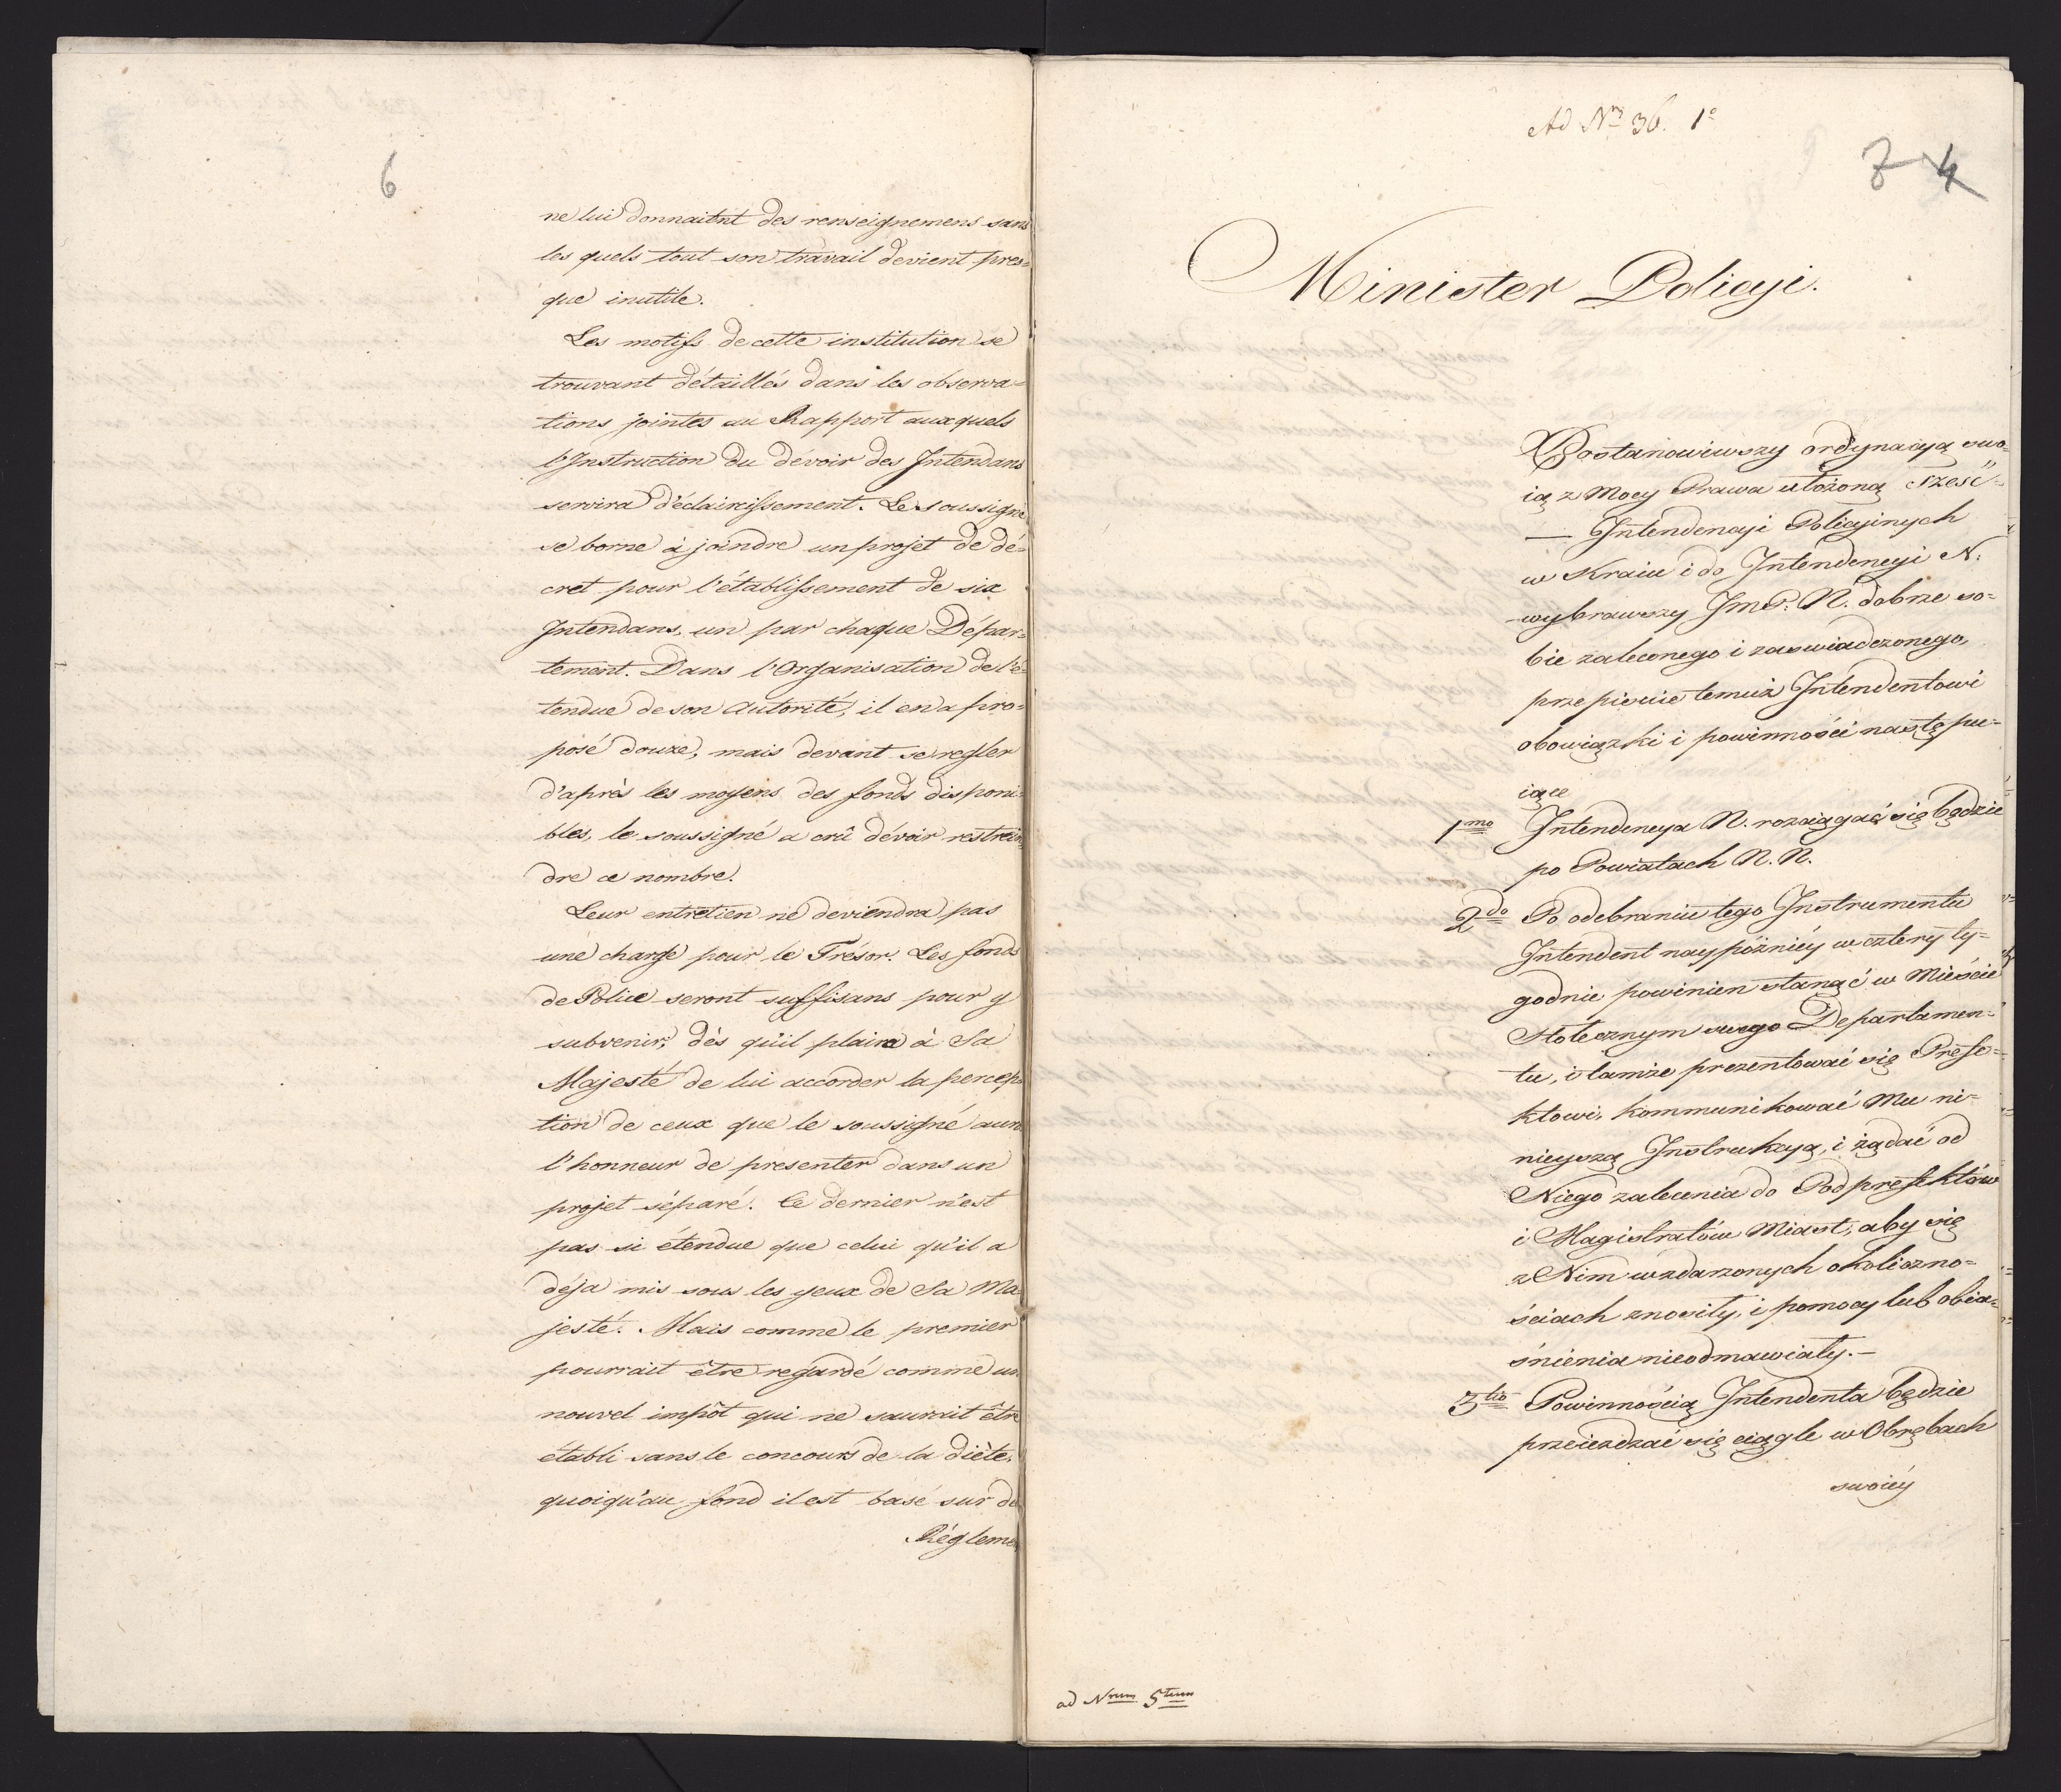 6
ne lui donnaient des renseignemens sans
les quels tout son travail devient pres=
que inutile.
Les motifs de cette institution se
trouvant détaillés dans les observa=
tions jointes au Rapport aux quels
l'Instruction du dévoir des Intendans
servira d'éclaircissement. Le soussigné
se borne à joindre un projet de dé=
cret pour l'établissement de six
Intendans, un par chaque Dépar=
tement. Dans l'Organisation de l'é=
tendue de son Autorité, il en a pro=
posé douze, mais devant se regler
d'après les moyens des fonds disponi=
bles, le soussigné a crû dévoir restrein
dre ce nombre.
Leur entretien ne deviendra pas
une charge pour le Trésor. Les fonds
de Police seront suffisans pour y
subvenir, dès qu'il plaira à Sa
Majesté de lui accorder la percep=
tion de ceux que le soussigné aura
l'honneur de presenter dans un
projet séparé. Ce dernier n'est
pas si étendue que celui qu'il a
déja mis sous les yeux de Sa Ma
jesté. Mais comme le premier
pourrait être regardé comme un
nouvel impôt qui ne saurait être
établi sans le concours de la diète,
quoiqu'au fond il est basé sur de
Régleme
Ad Nrm 36. 1o
7 4
Minister Policyi.
Postanowiwszy ordynacyą swo=
ią z Mocy Prawa ułożoną Sześć=
— Intendencyi Policyinych
w Kraiu i do Intendencyi N.
wybrawszy JmP. N. dobrze so=
bie zaleconego i zaswiadczonego,
przepisuie temuż Intendentowi
obowiązki i powinności nastę pu=
iące
1mo Intendencya N. rozciągać się będzie
po Powiatach N. N.
2do Po odebraniu tego Instrumentu
Intendent naypóźniéy w cztery ty=
godnie powinien stanąć w Mieście
Stołecznym swego Departamen=
tu, i tamże prezentować się Prefe=
ktowi, kommunikować Mu ni=
nieyszą Instrukcyą, i żądać od
Niego zalecenia do Podprefektów
i Magistratów Miast, aby się
z Nim w zdarzonych okoliczno=
ściach znosiły, i pomocy lub obia=
śnienia nieodmawiały. —
3tio Powinnością Intendenta będzie
przeieżdzać się ciągle w Obrębach
swoiéy
ad Nrum 5tum